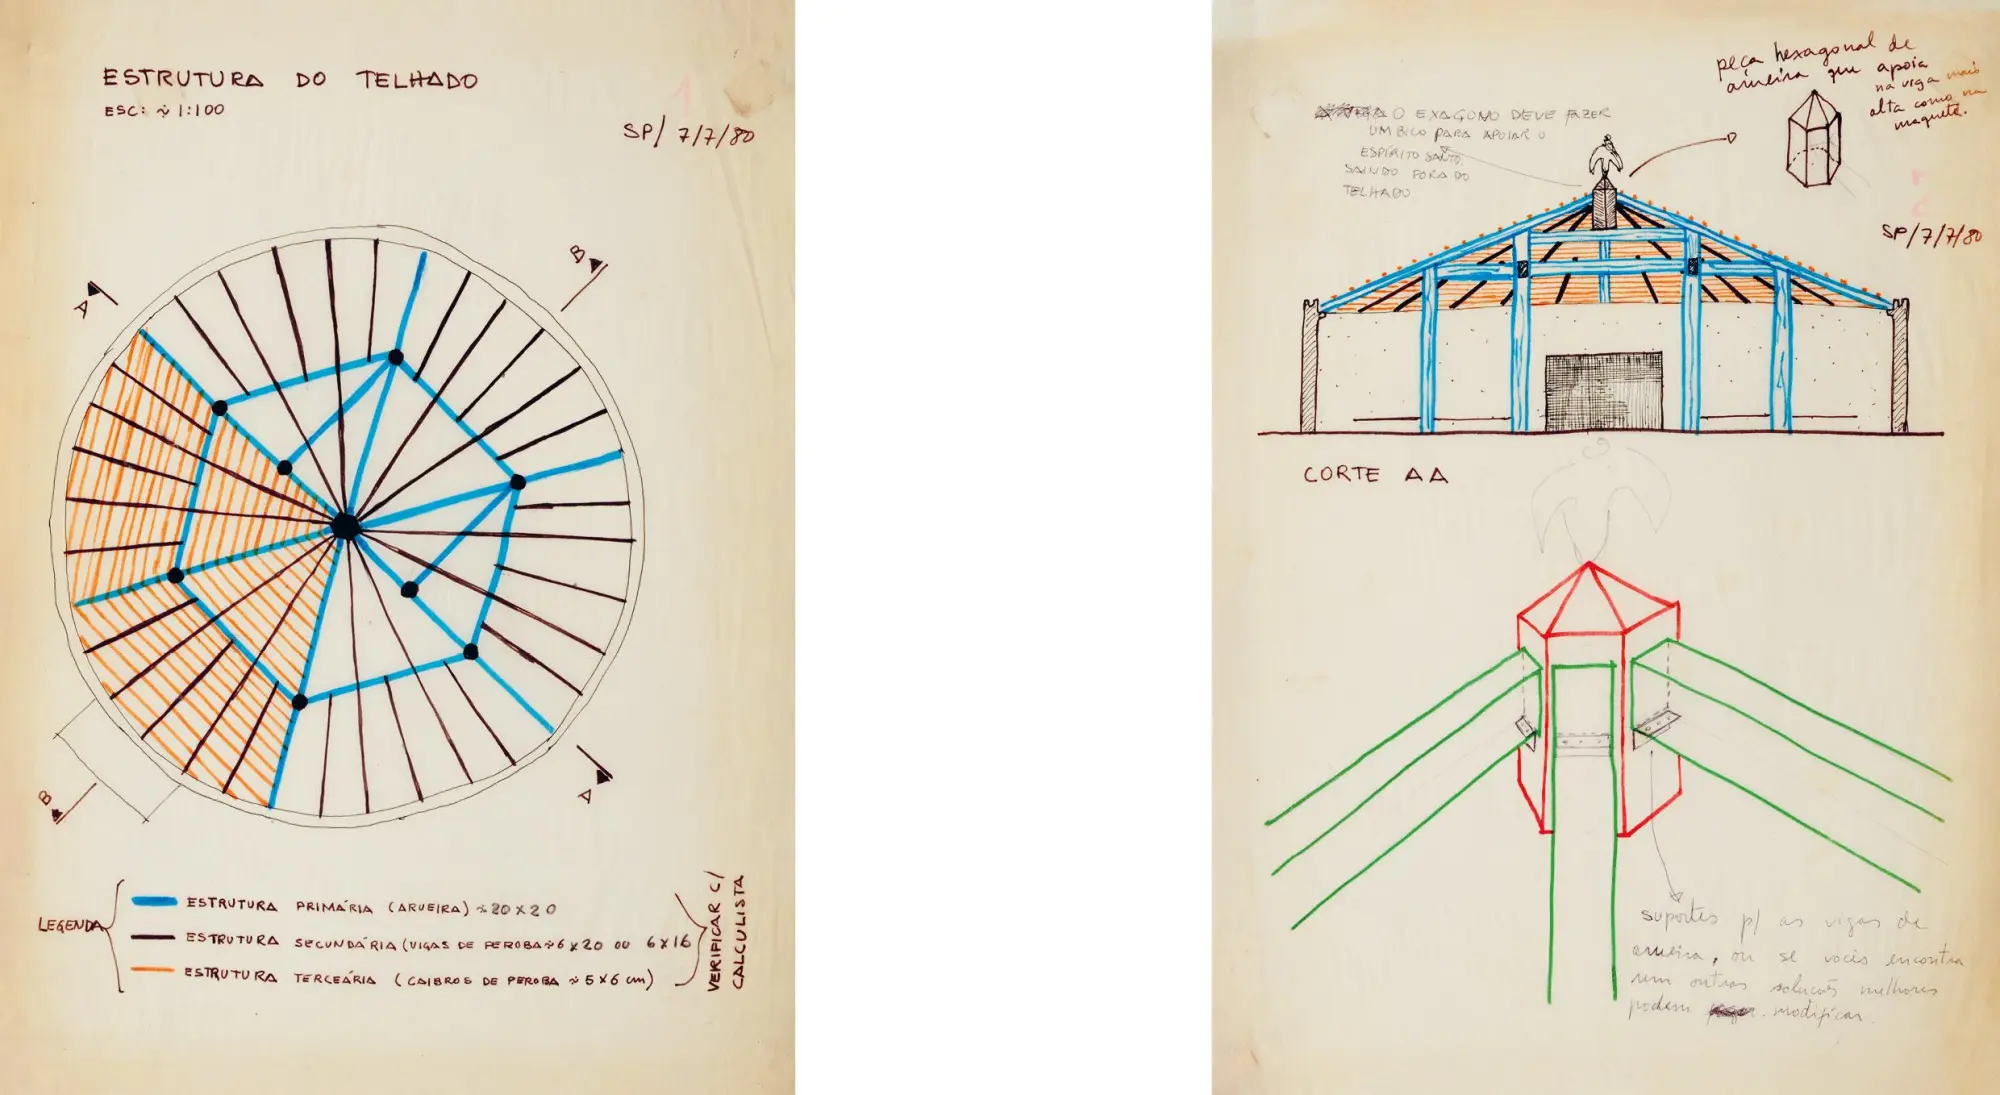 ESTRUTURA DO TELHADO
ESC: ~ 1:100
1
SP/ 7/7/80
B
A
B
A
LEGENDA
ESTRUTURA PRIMÁRIA (ARUEIRA) ~ 20 X 20
ESTRUTURA SECUNDÁRIA (VIGAS DE PEROBA ~ 6 X 20 OU 6 X 16
ESTRUTURA TERCEÁRIA (CAIBROS DE PEROBA ~ 5 X 6 cm)
VERIFICAR C/
CALCULISTA
peça hexagonal de
arueira que apoia
na viga mais
alta como na
maquete.
O EXAGONO DEVE FAZER
UM BICO PARA APOIAR O
ESPÍRITO SANTO
SAINDO FORA DO
TELHADO
SP/7/7/80
CORTE AA
suportes p/ as vigas de
arueira, ou se vocês encontra
rem outras soluções melhores
podem modificar.